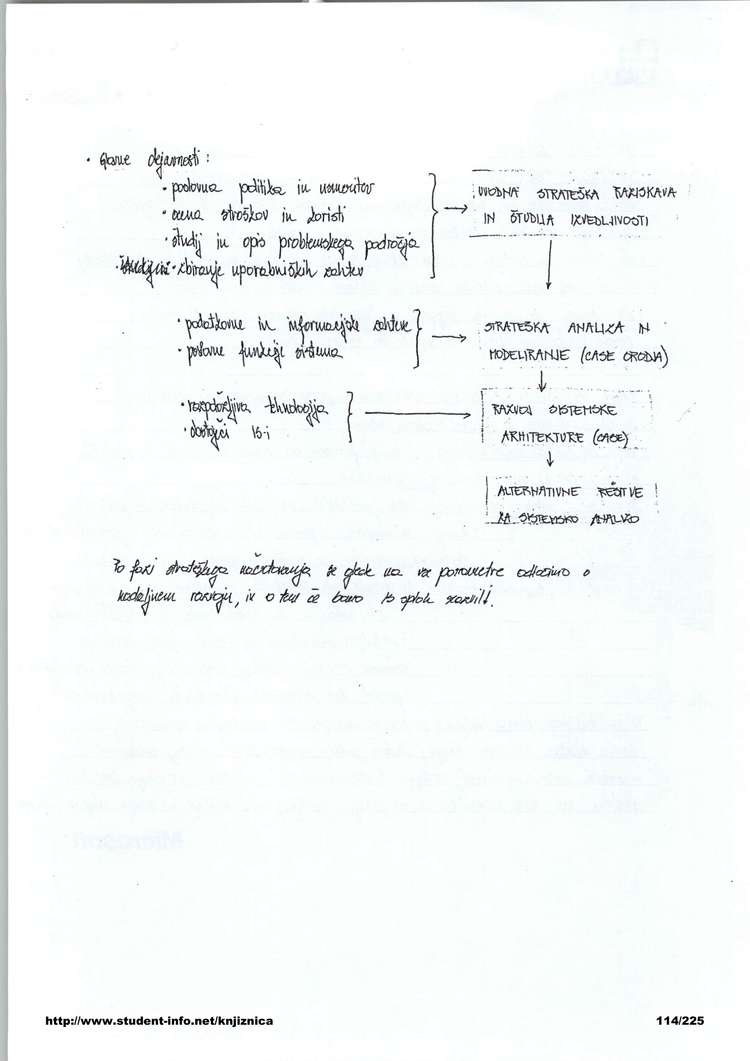 • Glavne dejavnosti:
• poslovna politika in usmeritev
• ocena stroškov in koristi
• študij in opis problemskega področja
• zbiranje uporabniških zahtev
UVODNA STRATEŠKA RAZISKAVA
IN ŠTUDIJA IZVEDLJIVOSTI
• podatkovne in informacijske zahteve
• poslovne funkcije sistema
STRATEŠKA ANALIZA IN
MODELIRANJE (CASE ORODJA)
• razpoložljiva tehnologija
• obstoječi IS-i
RAZVOJ SISTEMSKE
ARHITEKTURE (CASE)
ALTERNATIVNE REŠITVE
ZA SISTEMSKO ANALIZO
Po fazi strateškega načrtovanja se glede na vse parametre odločimo o
nadaljnem razvoju, in o tem če bomo IS sploh razvili.
http://www.student-info.net/knjiznica
114/225